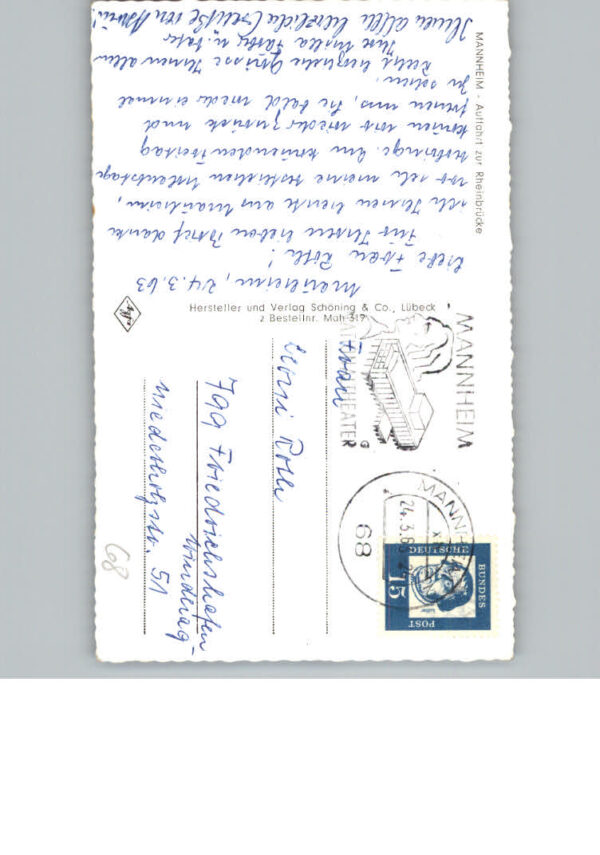 MANNHEIM - Auffahrt zur Rheinbrücke
Mannheim, 24.3.63
Liebe Frau Roth!
Für Ihren lieben Brief danke
ich Ihnen heute aus Mannheim,
wo ich meine restlichen Urlaubstage
verbringe. Am kommenden Freitag
kommen wir wieder zurück und
freuen uns, Sie bald wieder einmal
zu sehen.
Recht herzliche Grüsse Ihnen allen
Ihre Milla
Ihnen allen herzliche Grüße von
Hersteller und Verlag Schöning & Co., Lübeck
z Bestellnr. Mah 319
agfa
MANNHEIM
NATIONALTHEATER
MANNHEIM
24.3.63
68
DEUTSCHE
BUNDES
POST
15
Luther
Frau
Roth
799 Friedrichshafen
Windhag
Niederholzstr. 51
68